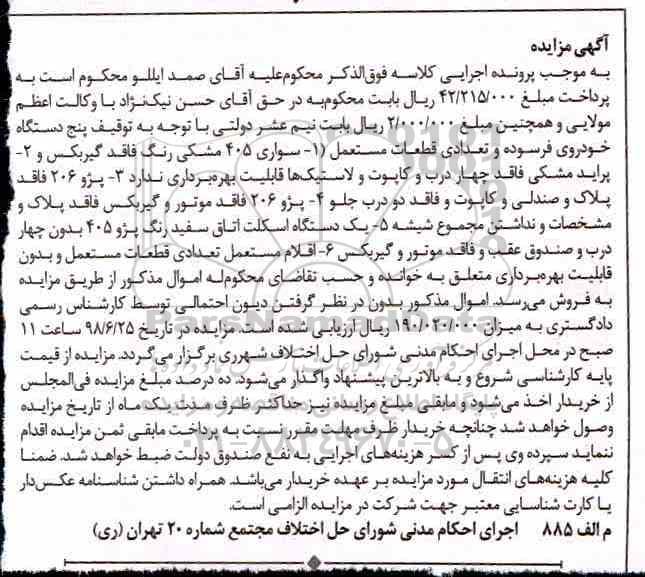 آگهی مزایده
به موجب پرونده اجرایی کلاسه فوق‌الذکر محکوم‌علیه آقای صمد ایللو محکوم است به
پرداخت مبلغ ۴۲/۲۱۵/۰۰۰ ریال بابت محکوم‌به در حق آقای حسن نیک‌نژاد با وکالت اعظم
مولایی و همچنین مبلغ ۲/۰۰۰/۰۰۰ ریال بابت نیم عشر دولتی با توجه به توقیف پنج دستگاه
خودروی فرسوده و تعدادی قطعات مستعمل (۱- سواری ۴۰۵ مشکی رنگ فاقد گیربکس و ۲-
پراید مشکی فاقد چهار درب و کاپوت و لاستیک‌ها قابلیت بهره‌برداری ندارد ۳- پژو ۲۰۶ فاقد
پلاک و صندلی و کاپوت و فاقد دو درب جلو ۴- پژو ۲۰۶ فاقد موتور و گیربکس فاقد پلاک و
مشخصات و نداشتن مجموع شیشه ۵- یک دستگاه اسکلت اتاق سفید رنگ پژو ۴۰۵ بدون چهار
درب و صندوق عقب و فاقد موتور و گیربکس ۶- اقلام مستعمل تعدادی قطعات مستعمل و بدون
قابلیت بهره‌برداری متعلق به خوانده و حسب تقاضای محکوم‌له اموال مذکور از طریق مزایده
به فروش می‌رسد. اموال مذکور بدون در نظر گرفتن دیون احتمالی توسط کارشناس رسمی
دادگستری به میزان ۱۹۰/۰۲۰/۰۰۰ ریال ارزیابی شده است. مزایده در تاریخ ۹۸/۶/۲۵ ساعت ۱۱
صبح در محل اجرای احکام مدنی شورای حل اختلاف شهرری برگزار می‌گردد. مزایده از قیمت
پایه کارشناسی شروع و به بالاترین پیشنهاد واگذار می‌شود. ده درصد مبلغ مزایده فی‌المجلس
از خریدار اخذ می‌شود و مابقی مبلغ مزایده نیز حداکثر ظرف مدت یک ماه از تاریخ مزایده
وصول خواهد شد چنانچه خریدار ظرف مهلت مقرر نسبت به پرداخت مابقی ثمن مزایده اقدام
ننماید سپرده وی پس از کسر هزینه‌های اجرایی به نفع صندوق دولت ضبط خواهد شد. ضمنا
کلیه هزینه‌های انتقال مورد مزایده بر عهده خریدار می‌باشد. همراه داشتن شناسنامه عکس‌دار
یا کارت شناسایی معتبر جهت شرکت در مزایده الزامی است.
م الف ۸۸۵ اجرای احکام مدنی شورای حل اختلاف مجتمع شماره ۲۰ تهران (ری)
ParsNamadData
۰۲۱-۸۸۳۴۹۶۷۰-۵